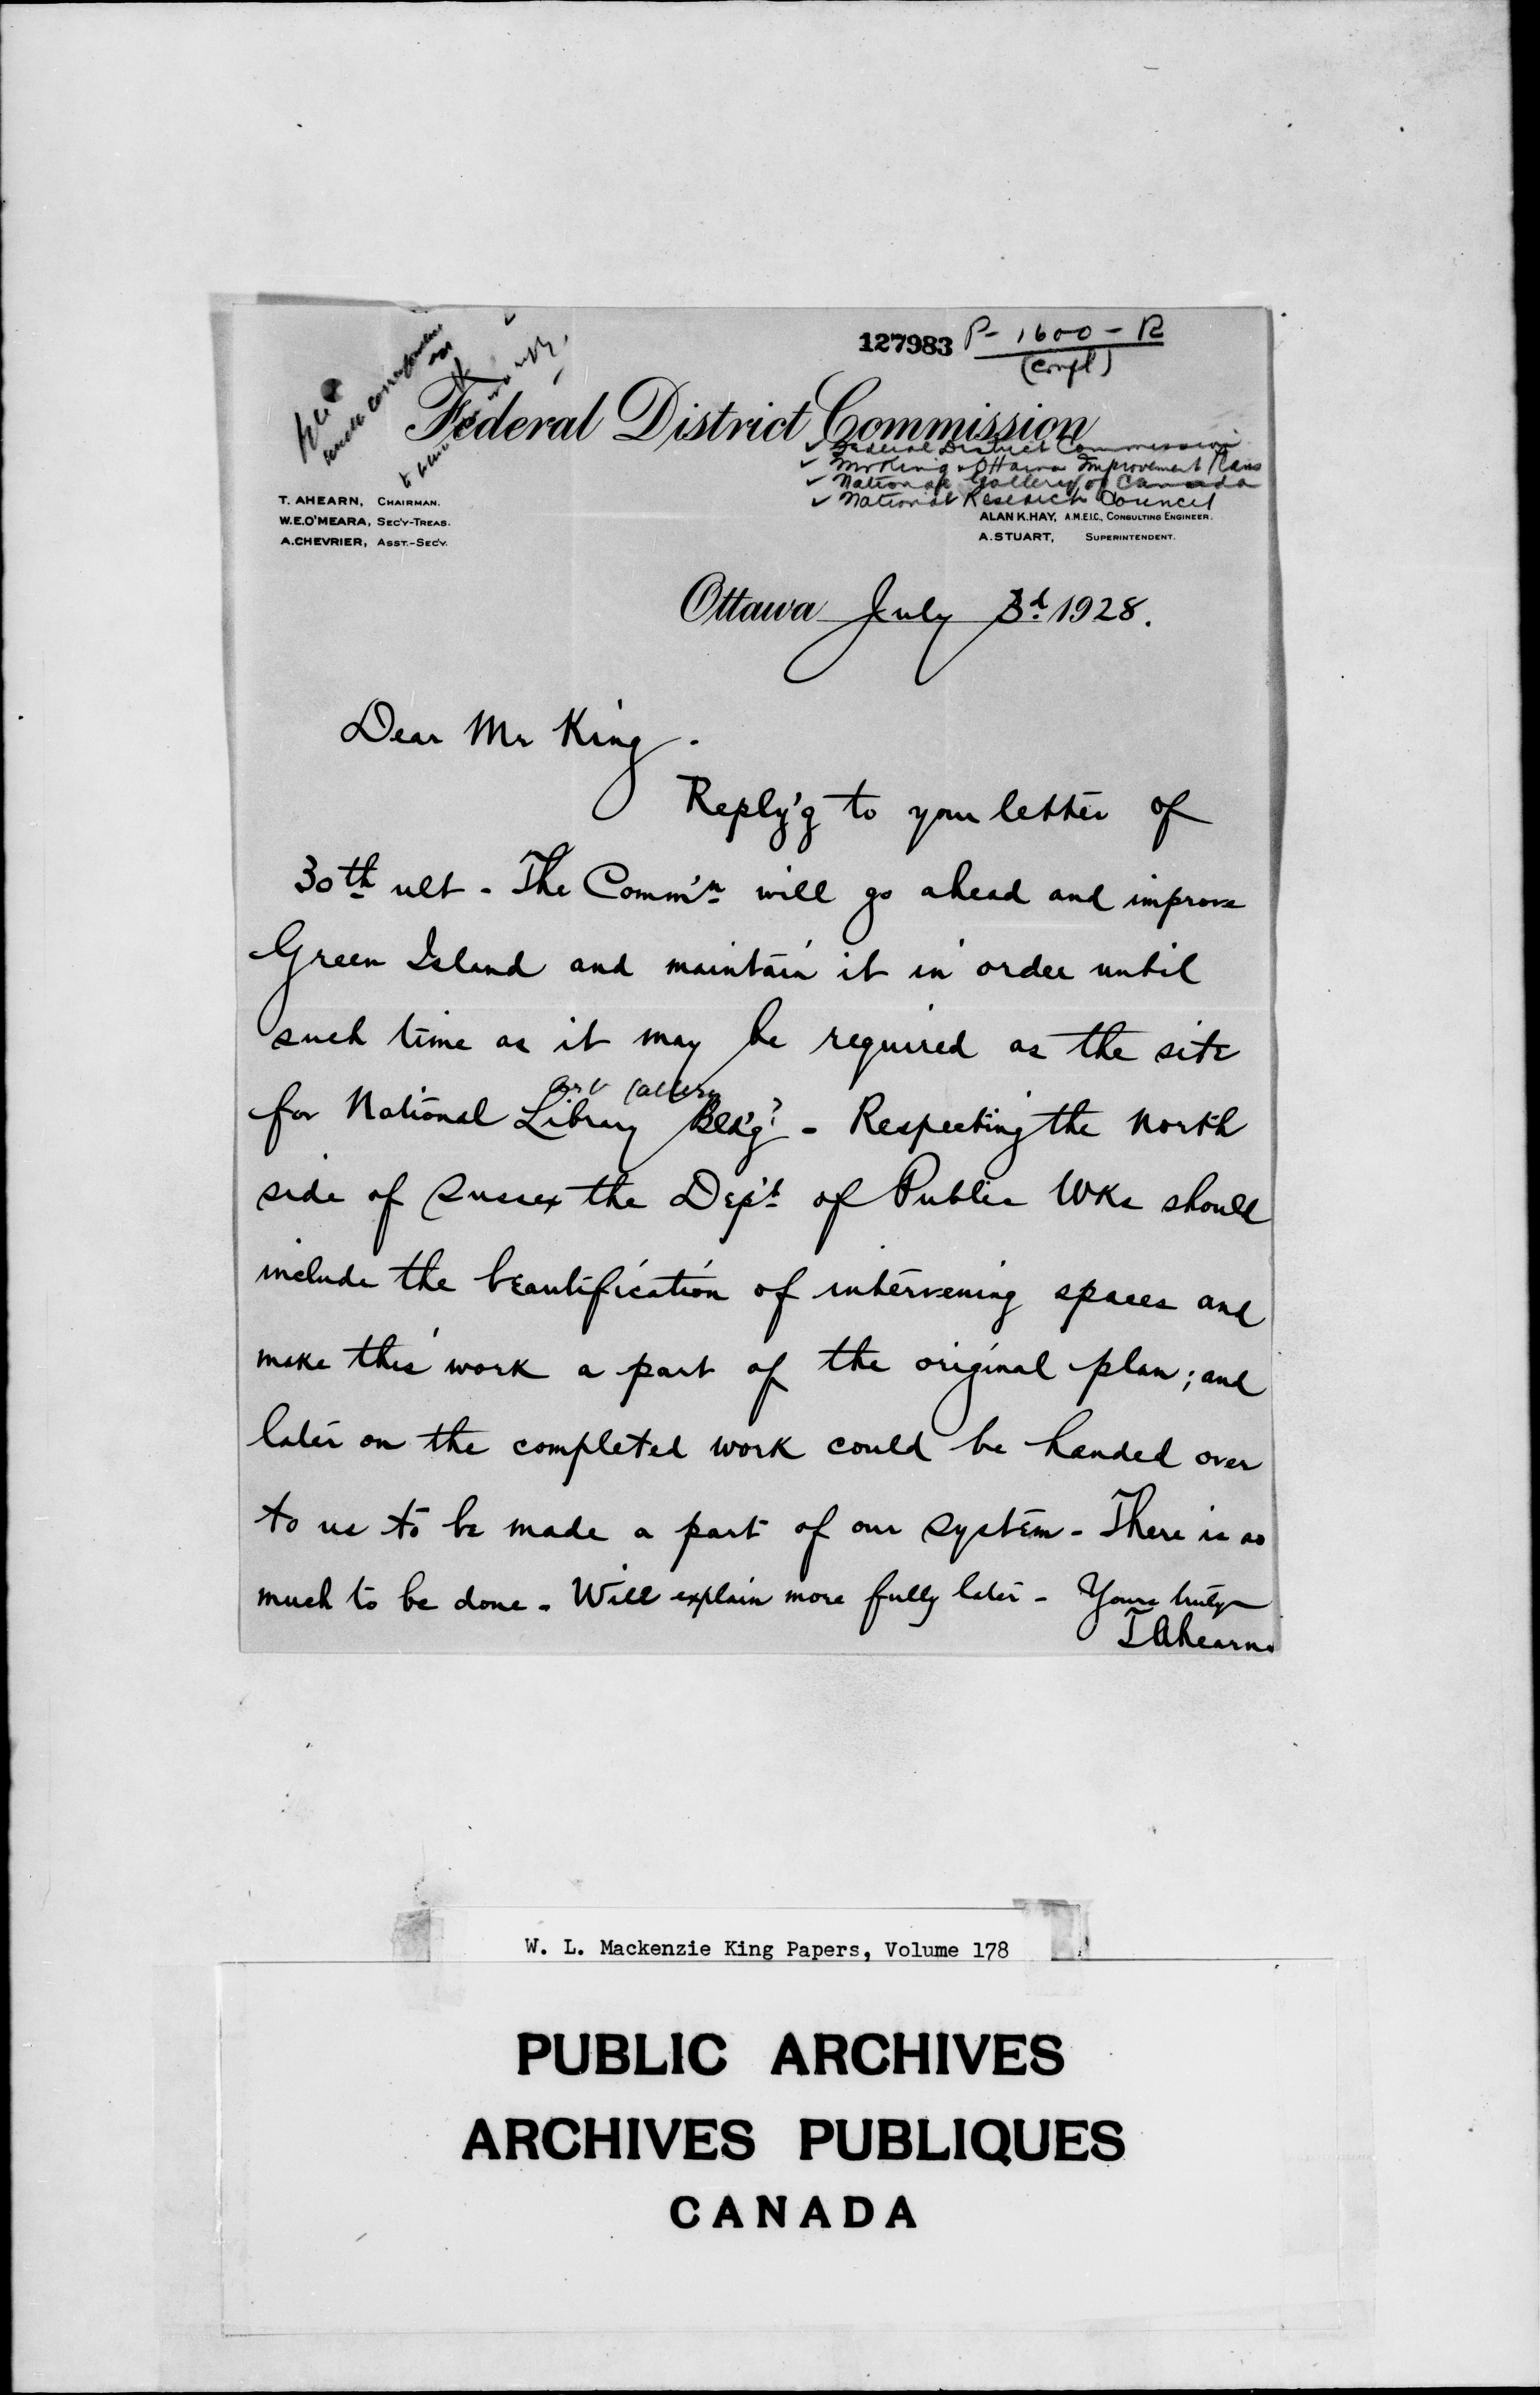 127983 P-1600-R
(Confl)
Federal District Commission
✓ Federal District Commission
✓ Mr King - Ottawa Improvement Plans
✓ National Gallery of Canada
✓ National Research Council
T. AHEARN, CHAIRMAN.
W.E.O'MEARA, SEC'Y-TREAS.
A.CHEVRIER, ASST.-SEC'Y.
ALAN K.HAY, A.M.E.I.C., CONSULTING ENGINEER.
A.STUART, SUPERINTENDENT.
Ottawa July 3d 1928.
Dear Mr King.
Reply'g to your letter of
30th ult - The Comm'n will go ahead and improve
Green Island and maintain it in order until
such time as it may be required as the site
Art Gallery
for National Library Bld'g? - Respecting the north
side of Sussex the Dep't of Public Wks should
include the beautification of intervening spaces and
make this work a part of the original plan; and
later on the completed work could be handed over
to us to be made a part of our system - There is so
much to be done - Will explain more fully later - Yours truly
T Ahearn.
W. L. Mackenzie King Papers, Volume 178
PUBLIC ARCHIVES
ARCHIVES PUBLIQUES
CANADA